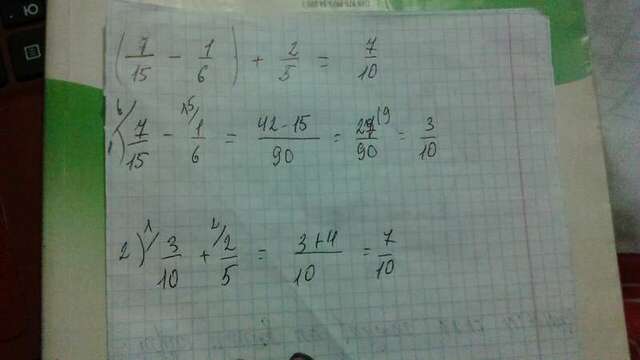 (7/15 - 1/6) + 2/5 = 7/10
1) 6/ 7/15 - 15/ 1/6 = 42-15/90 = 27/90 |9 = 3/10
2) 1/ 3/10 + 2/ 2/5 = 3+4/10 = 7/10
Ю